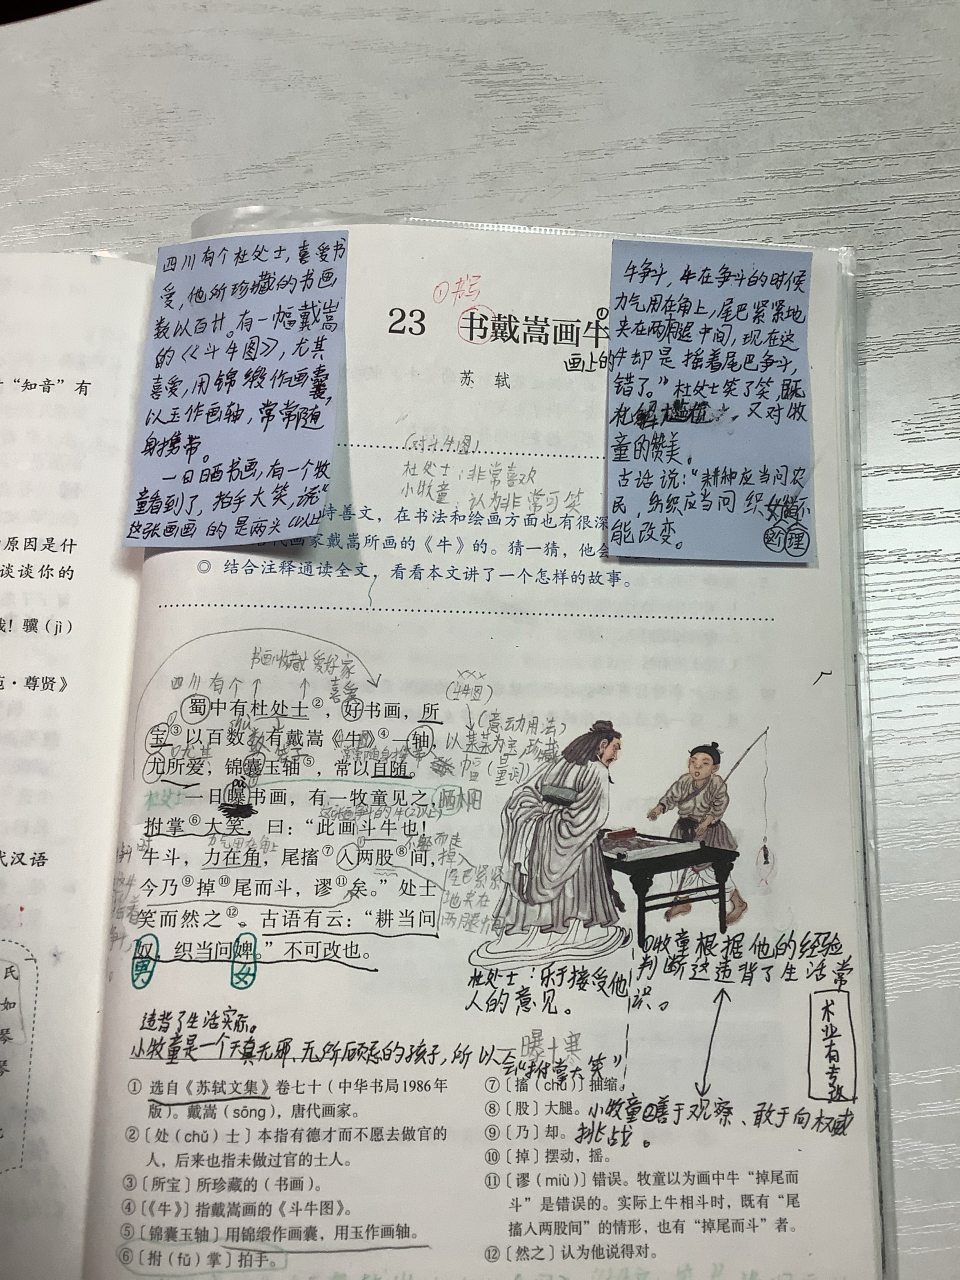 四川有个杜处士，喜爱书
爱，他所珍藏的书画
数以百计。有一幅戴嵩
的《斗牛图》，尤其
喜爱，用锦缎作画囊，
以玉作画轴，常常随
身携带。
一日晒书画，有一个牧
童看到了，拍手大笑，说“
这张画画的是两头
牛争斗，牛在争斗的时候
力气用在角上，尾巴紧紧地
夹在两腿中间，现在这
牛却是摇着尾巴争斗，
错了。”杜处士笑了笑，
又对牧
童的赞美。
古话说：“耕种应当问农
民，纺织应当问织女
能改变。
①书写
23 书戴嵩画牛①
画上的
苏轼
(对斗牛图)
杜处士：非常喜欢
小牧童：认为非常可笑
诗善文，在书法和绘画方面也有很深
代画家戴嵩所画的《牛》的。猜一猜，他会
◎ 结合注释通读全文，看看本文讲了一个怎样的故事。
“知音”有
原因是什
谈谈你的
！骥（jì）
·尊贤》
代汉语
氏
如
琴
琴
书画收藏爱好家
四川有个
喜爱
(斗牛图)
蜀中有杜处士②，好书画，所
(意动用法)
宝③以百数。有戴嵩《牛》④一轴，
以某某为宝 珍藏
尤其
幅(量词)
尤所爱，锦囊玉轴⑤，常以自随。
一日曝书画，有一牧童见之，
晒太阳
拊掌⑥大笑，曰：“此画斗牛也！
力气用在角上
牛斗，力在角，尾搐⑦入两股⑧间，
今乃⑨掉⑩尾而斗，谬⑪矣。”处士
笑而然之⑫。古语有云：“耕当问
奴，织当问婢。”不可改也。
男
女
尾巴紧紧
地夹在
两腿中间
杜处士：乐于接受他
人的意见。
①牧童根据他的经验
判断这违背了生活常
识。
术业有专攻
违背了生活实际。
小牧童是一个天真无邪、无所顾忌的孩子，所以会“拊掌大笑”
曝 十寒
小牧童②善于观察、敢于向权威
挑战。
① 选自《苏轼文集》卷七十（中华书局1986年
版）。戴嵩（sōng），唐代画家。
②〔处（chǔ）士〕本指有德才而不愿去做官的
人，后来也指未做过官的士人。
③〔所宝〕所珍藏的（书画）。
④〔《牛》〕指戴嵩画的《斗牛图》。
⑤〔锦囊玉轴〕用锦缎作画囊，用玉作画轴。
⑥〔拊（fǔ）掌〕拍手。
⑦〔搐（chù）〕抽缩。
⑧〔股〕大腿。
⑨〔乃〕却。
⑩〔掉〕摆动，摇。
⑪〔谬（miù）〕错误。牧童以为画中牛“掉尾而
斗”是错误的。实际上牛相斗时，既有“尾
搐入两股间”的情形，也有“掉尾而斗”者。
⑫〔然之〕认为他说得对。